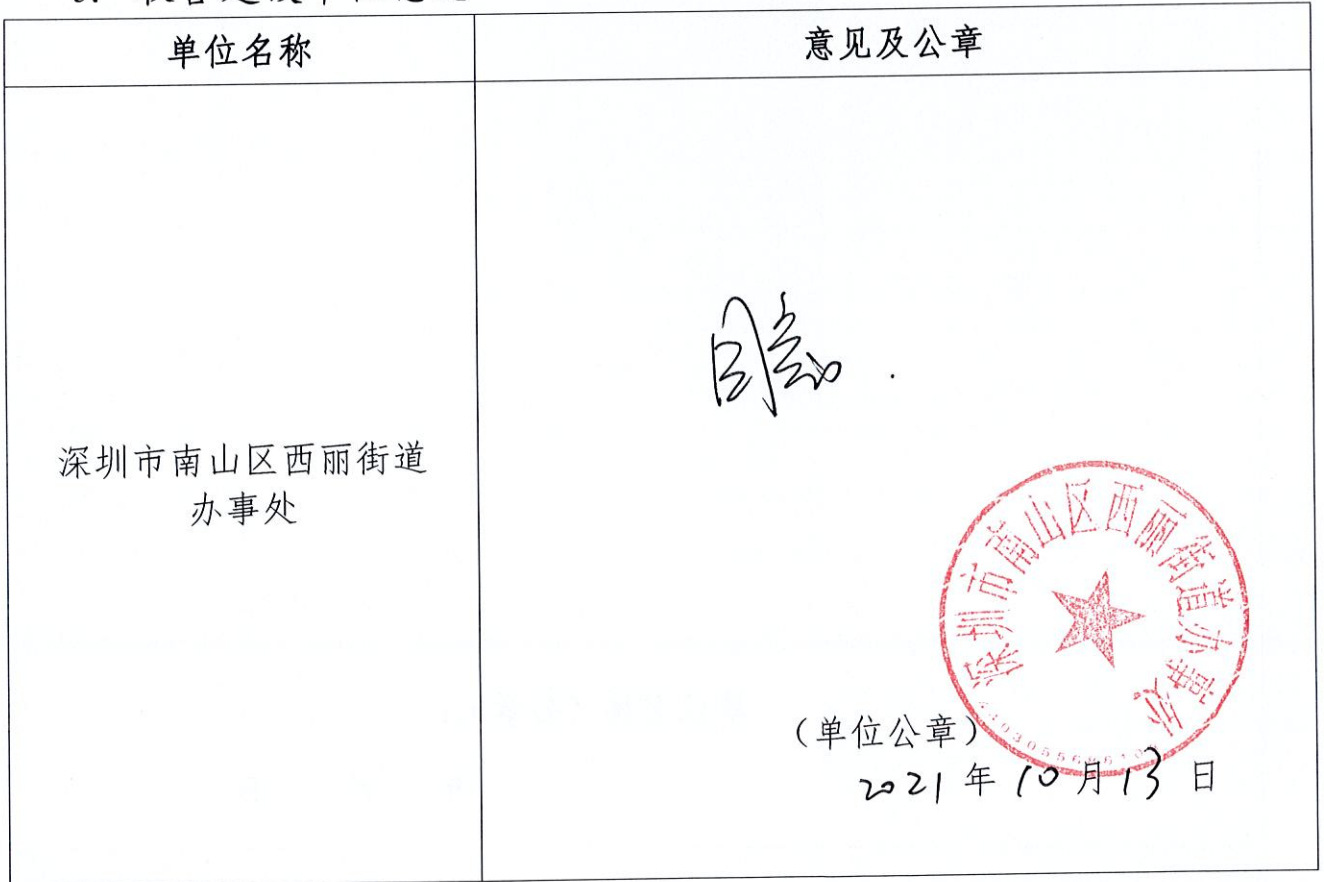 单位名称
意见及公章
深圳市南山区西丽街道
办事处
同意.
深圳市南山区西丽街道办事处
(单位公章)
2021年10月13日